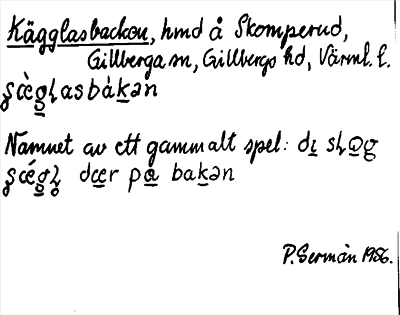 Kägglasbacken, hmd å Skomperud,
Gillberga sn, Gillbergs hd, Värml. l.
ʂæ̀g̲ɭasbák̲ən
Namnet av ett gammalt spel: dɩ̲ sɭɷ̲g
ʂǽg̲ɭ̥ dæ̲r pa̲ bak̲ən
P. Germån 1956.